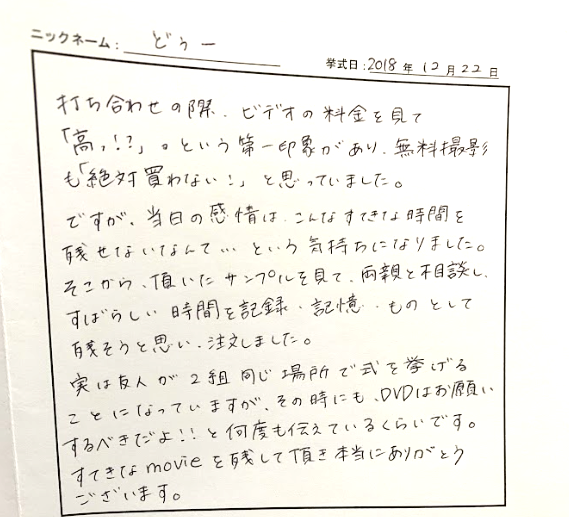 ニックネーム: どぅー
挙式日: 2018 年 12 月 22 日
打ち合わせの際、ビデオの料金を見て
「高っ!?」。という第一印象があり、無料撮影
も「絶対買わない!」と思っていました。
ですが、当日の感情は、こんなすてきな時間を
残せないなんて… という気持ちになりました。
そこから、頂いたサンプルを見て、両親と相談し、
すばらしい時間を記録・記憶・ものとして
残そうと思い、注文しました。
実は友人が2組同じ場所で式を挙げる
ことになっていますが、その時にも、DVDはお願い
するべきだよ!!と何度も伝えているくらいです。
すてきなmovieを残して頂き本当にありがとう
ございます。